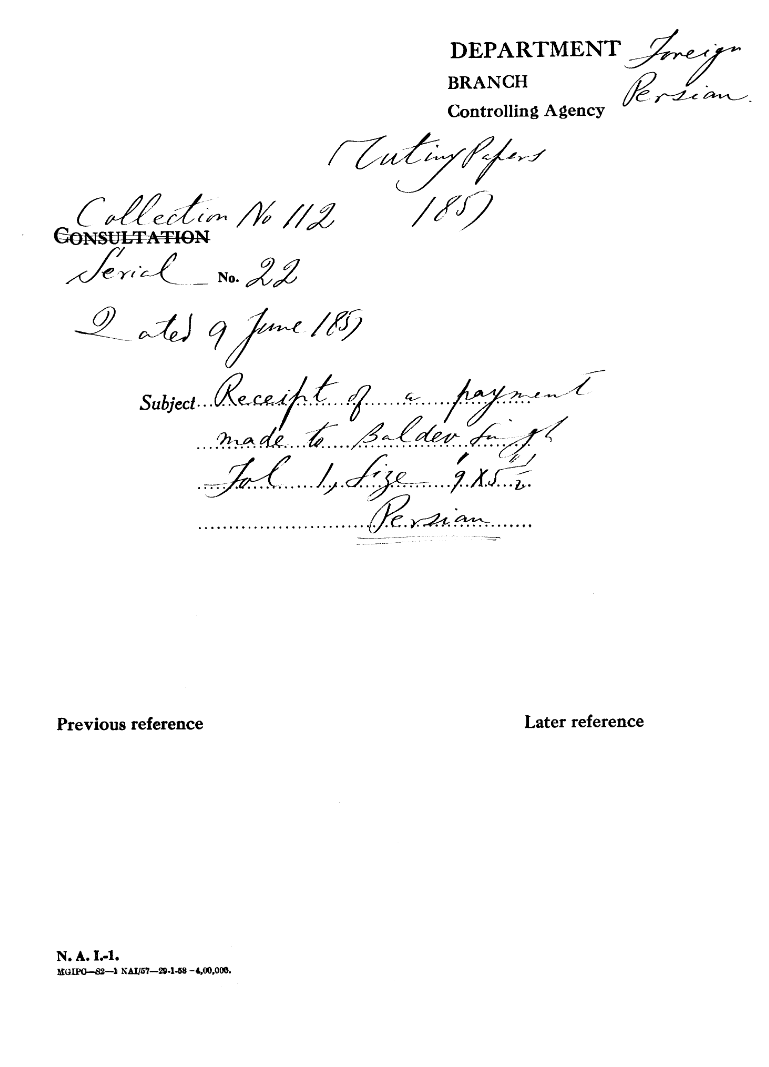 DEPARTMENT Foreign
BRANCH Persian.
Controlling Agency
Mutiny Papers
Collection No 112 1857
CONSULTATION
Serial No. 22
Dated 9 June 1857
Subject Receipt of a payment
made to Baldev Singh
Fol 1, Size 9" X 5 1/2"
Persian
Previous reference Later reference
N. A. I.-1.
MGIPC—S2—1 NAI/57—29-1-58 —4,00,000.